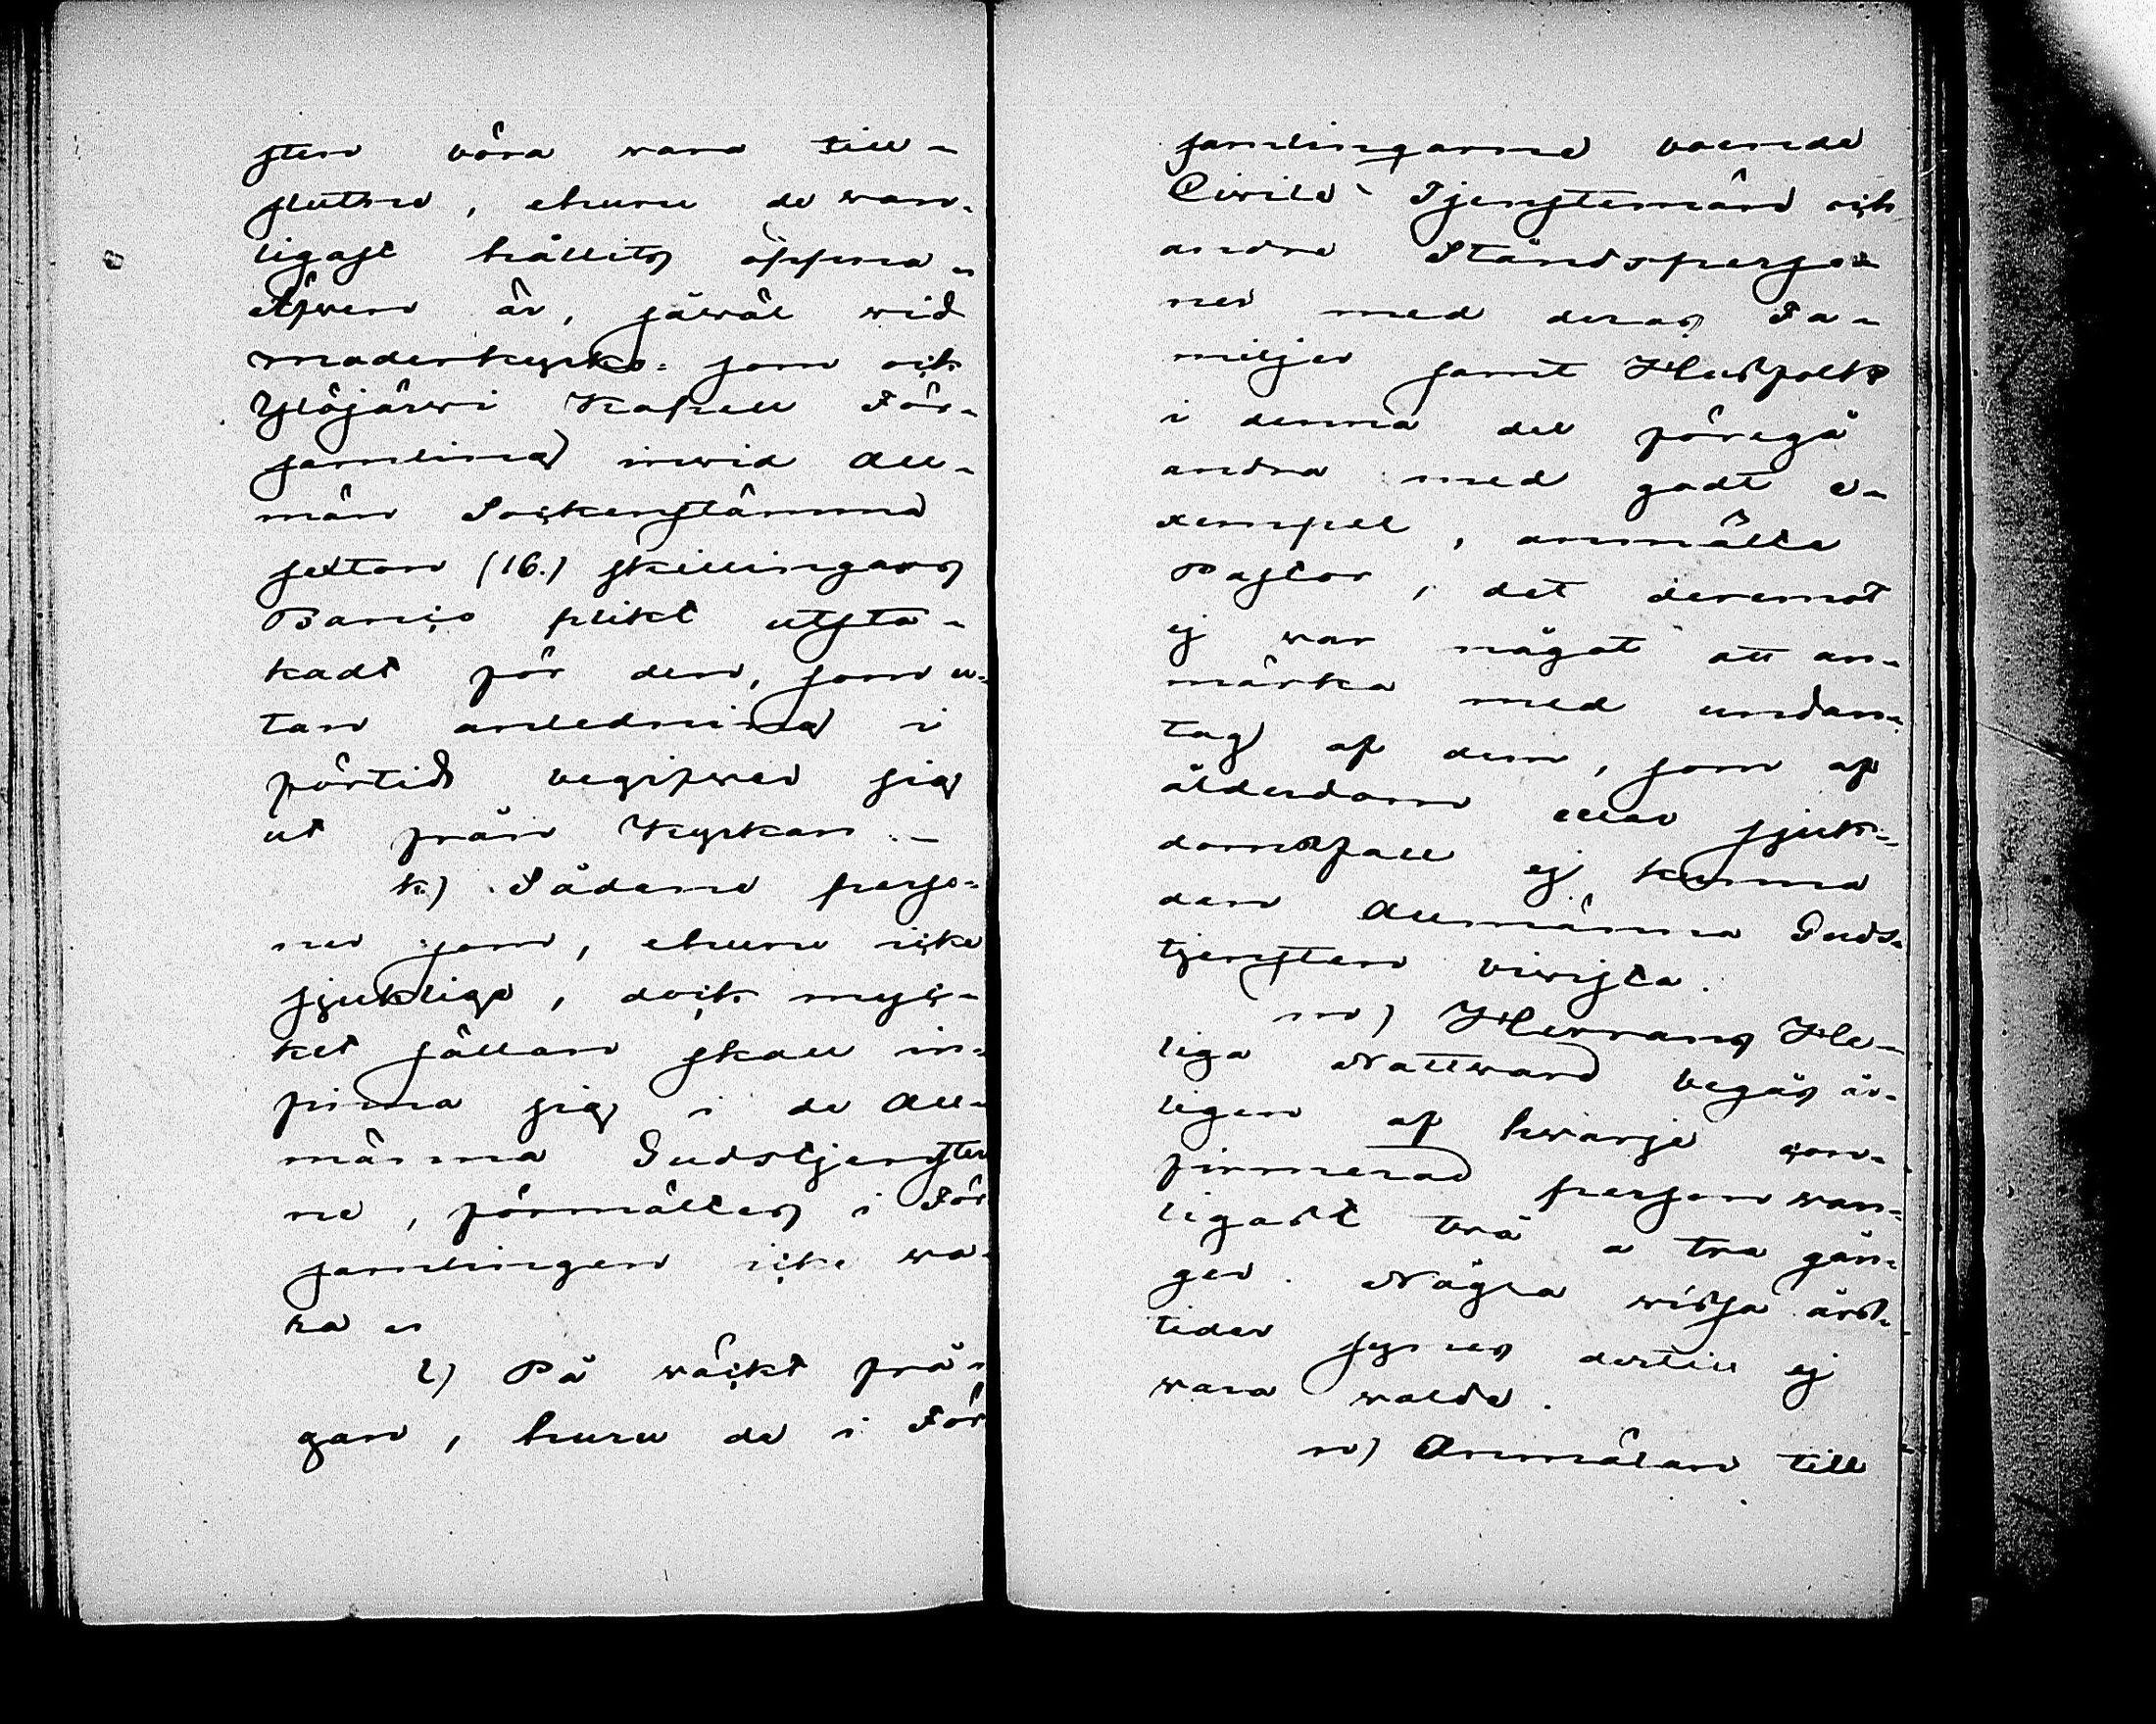 sten böra vara till-
slutne, ehuru de van-
ligast hållits öppna.
Äfven är, såväl vid
moderkyrko- som ock
Ylöjärvi Kapell För-
samling invid All-
män Sockenstämma
sexton (16.) skillingars
Banco plikt utsta-
kadt för den, som u-
tan anledning i
förtid begifver sig
ut från Kyrkan. -
k.) Sådane perso-
ner som, ehuru icke
sjuklige, dock myc-
ket sällan skall in-
finna sig i de All-
männa Gudstjenster
ne, förmältes i För
samlingen icke va-
ra.
l) På väckt frå-
gan, huru de i För
samlingarne boende
Civile Tjenstemän och
andre Ståndsperso-
ner med deras Fa-
miljer samt Husfolk
i denna del föregå
andra med godt e-
xempel, anmälte
Pastor, det deremot
ej var något att an-
märka med undan-
tag af dem, som af
ålderdom eller sjuk-
domsfall ej kunna
den Allmänna Guds-
tjensten bivista.
m) Herrans He-
liga Nattvard begås år-
ligen af hvarje con-
firmerad person van-
ligast två a tre gån-
ger. Några vissa års-
tider synes dertill ej
vara valde.
n) Anmälan till